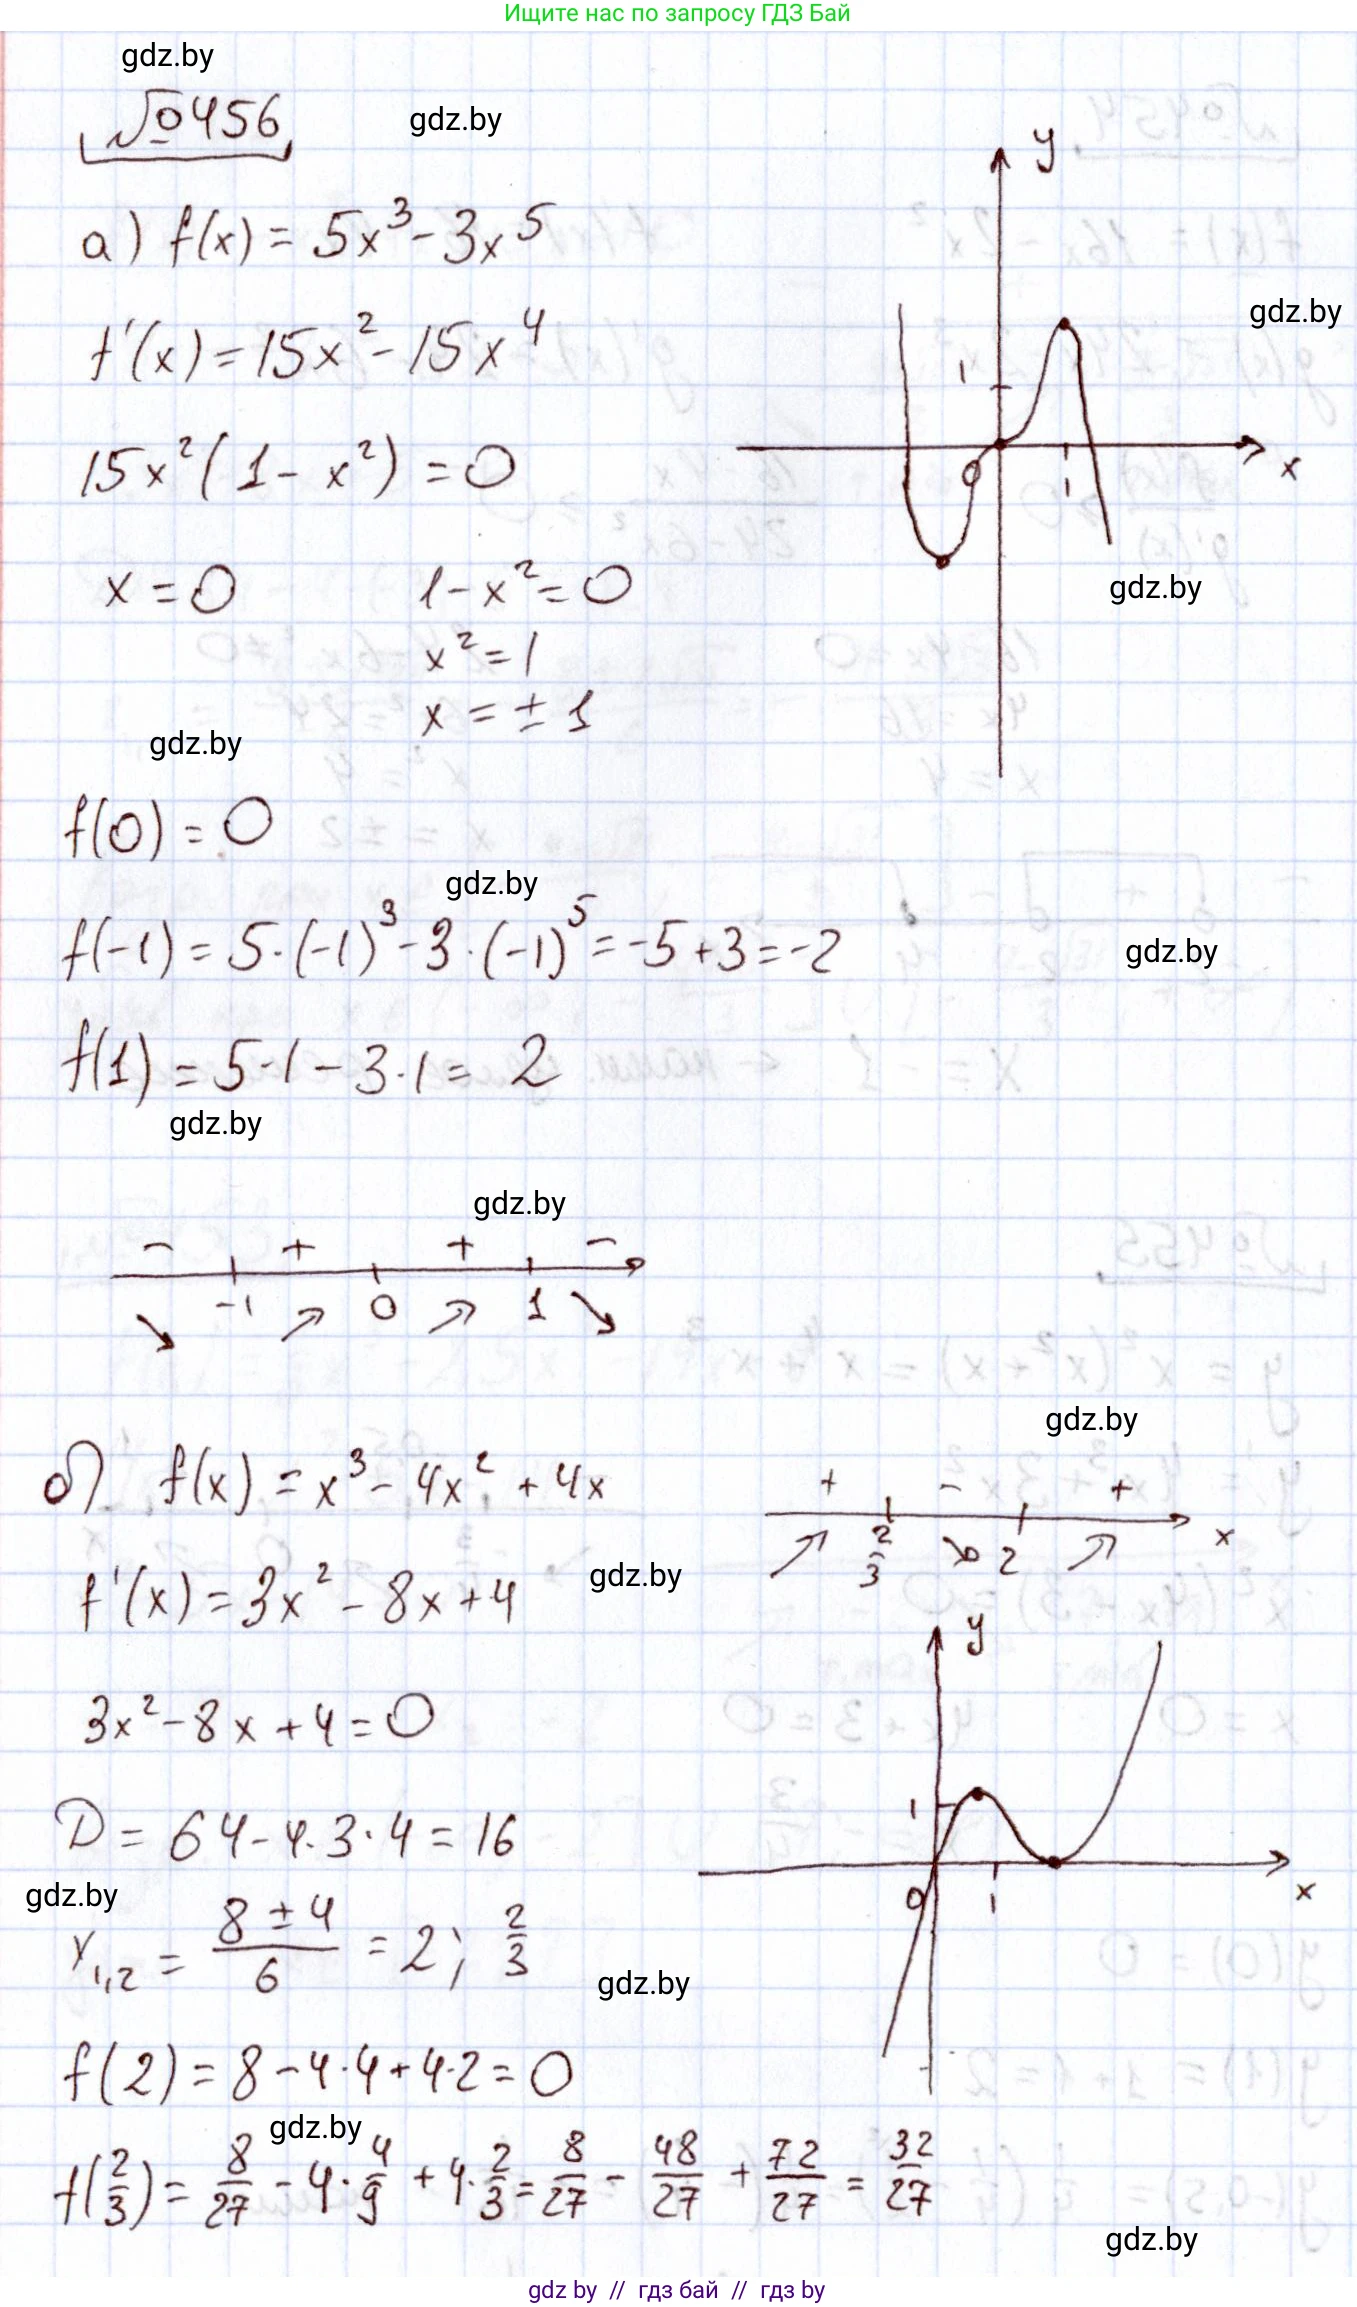 Ищите нас по запросу ГДЗ Бай
gdz.by
№456
gdz.by
а) f(x) = 5x³ - 3x⁵
y
gdz.by
f'(x) = 15x² - 15x⁴
1
15x²(1 - x²) = 0
0 1 x
x = 0 1 - x² = 0
gdz.by
x² = 1
x = ± 1
gdz.by
f(0) = 0
gdz.by
f(-1) = 5·(-1)³ - 3·(-1)⁵ = -5 + 3 = -2
gdz.by
f(1) = 5·1 - 3·1 = 2
gdz.by
gdz.by
- + + -
-1 0 1
gdz.by
б) f(x) = x³ - 4x² + 4x
+ - +
2/3 2 x
f'(x) = 3x² - 8x + 4
gdz.by
y
3x² - 8x + 4 = 0
D = 64 - 4·3·4 = 16
1
0 1 x
gdz.by
x₁,₂ = (8 ± 4)/6 = 2; 2/3
gdz.by
f(2) = 8 - 4·4 + 4·2 = 0
gdz.by
f(2/3) = 8/27 - 4·4/9 + 4·2/3 = 8/27 - 48/27 + 72/27 = 32/27
gdz.by
gdz by // гдз бай // гдз by